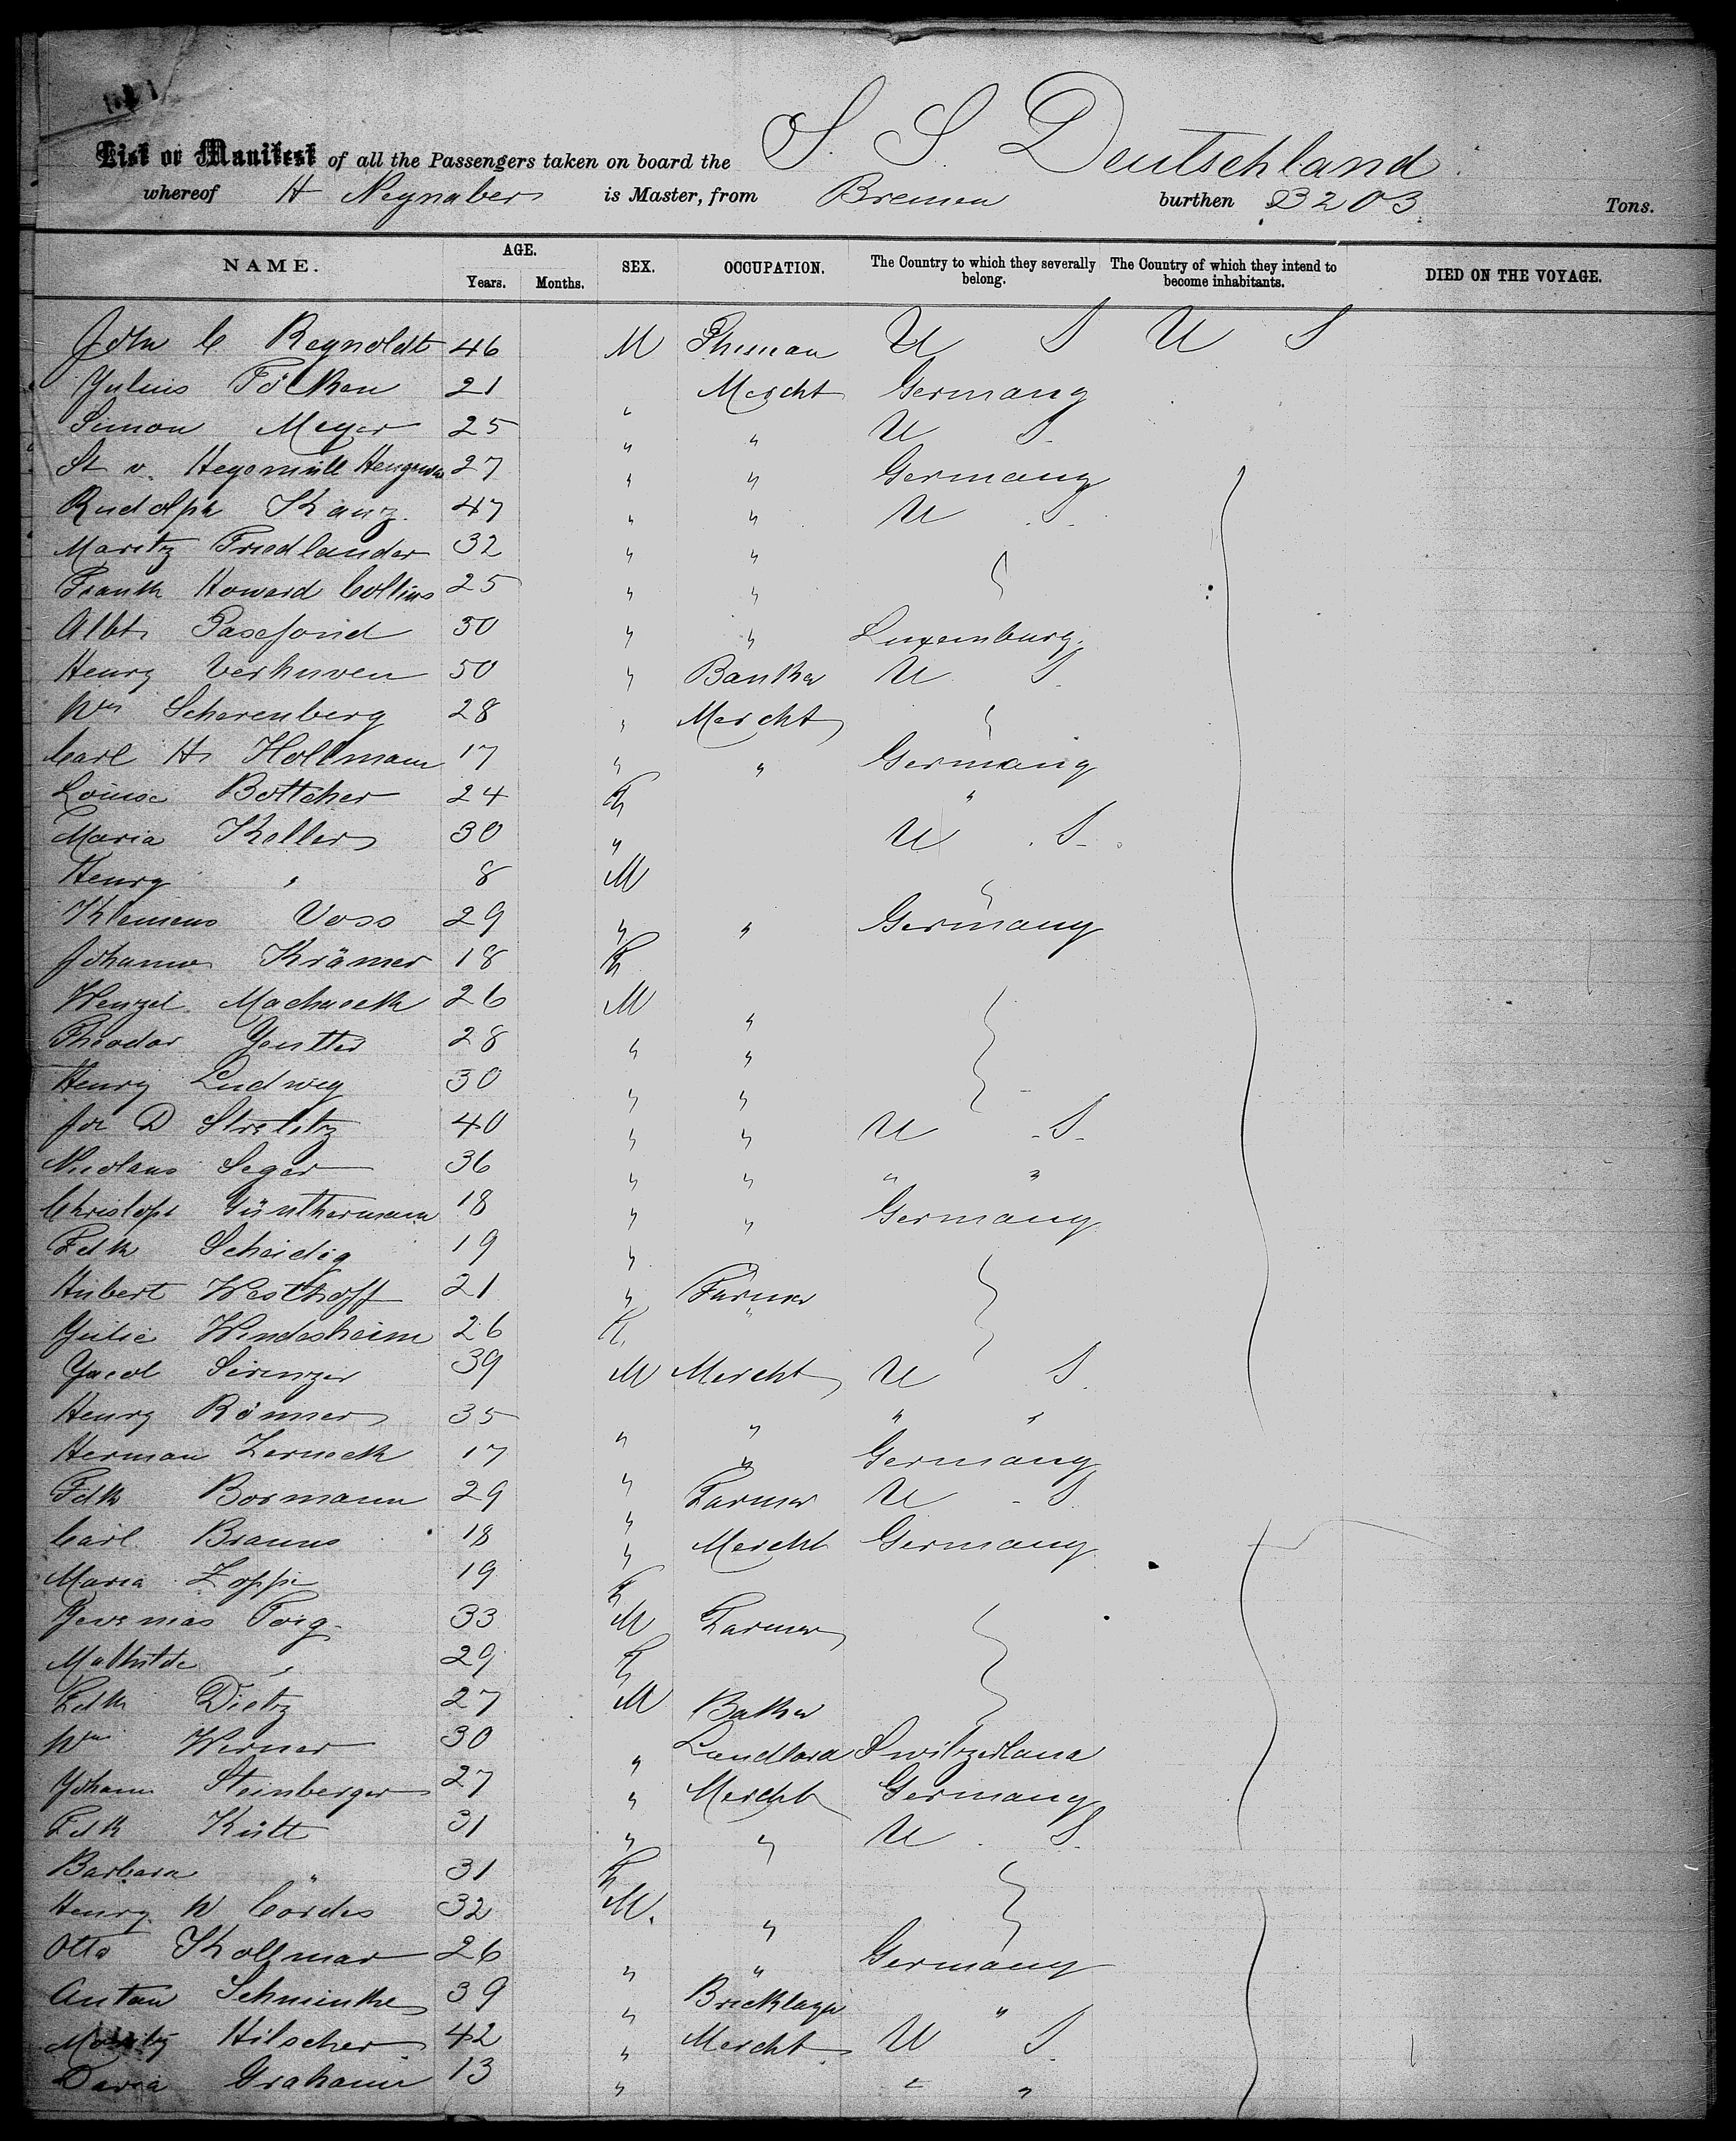 List or Manifest of all the Passengers taken on board the S. S. Deutschland
whereof H Neynaber is Master, from Bremen burthen 3203 Tons.
NAME. AGE. SEX. OCCUPATION. The Country to which they severally belong. The Country of which they intend to become inhabitants. DIED ON THE VOYAGE.
Years. Months.
John C Reynoldt 46 M U S U S
Julius Fölken 21 " Mercht Germany
Simon Meyer 25 " " U S
St v. Hegemüll 27 " " Germany
Rudolph Kanz 47 " " U S
Moritz Friedlander 32 " "
Frank Howard Collins 25 " "
Albt 30 " " Luxemburg
Henry Verhuven 50 " Banker U S
Wm Scherenberg 28 " Mercht
Carl H Hollmann 17 " " Germany
Louise Bottcher 24 F "
Maria Keller 30 " U S
Henry " 8 M
Klemens Voss 29 " " Germany
Johanna Krämer 18 F
Wenzel Machacek 26 M "
Theodor 28 " "
Henry Ludwig 30 " "
Jos D Strelitz 40 " " U S
Nicolaus Seger 36 " " " "
Christoph Günthermann 18 " " Germany
Fdk Scheidig 19 "
Hubert Westhoff 21 " Farmer
Julie Windesheim 26 F "
Jacob 39 M Mercht U S
Henry Römmer 35 " " " "
Herman Zerneck 17 " " Germany
Fdk Bormann 29 " Farmer U S
Carl Brauns 18 " Mercht Germany
Maria Zoppi 19 F
Jeremias Foig 33 M Farmer
Mathilde " 29 F
Fdk Dietz 27 M Baker
Wm Werner 30 " Landlord Switzerland
Johann Steinberger 27 " Mercht Germany
Fdk Kütt 31 " " U S
Barbara " 31 F
Henry W Cördes 32 M. "
Otto Kollmar 26 " " Germany
Anton Schminke 39 " Bricklayer "
Moritz Hilscher 42 " Mercht U S
David Graham 13 " " "